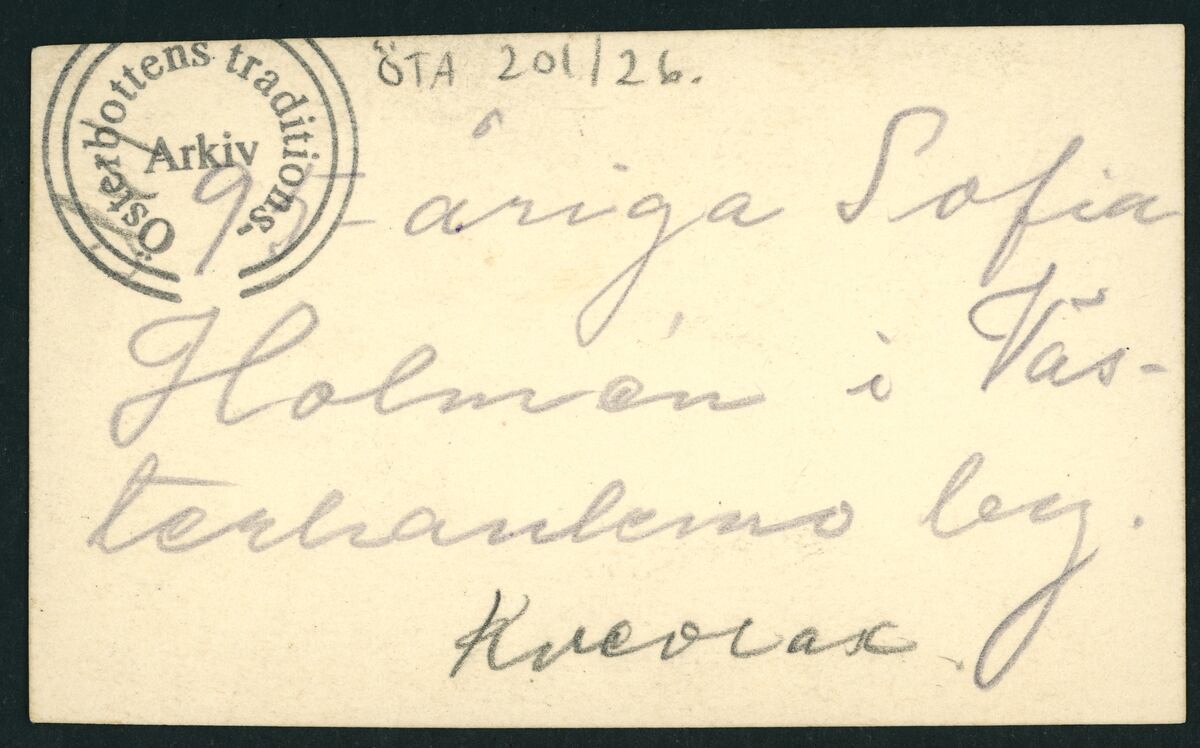 Österbottens traditions.
Arkiv
ÖTA 201/26.
95-åriga Sofia
Holmén i Väs-
terhankmo by.
Kvevlax.